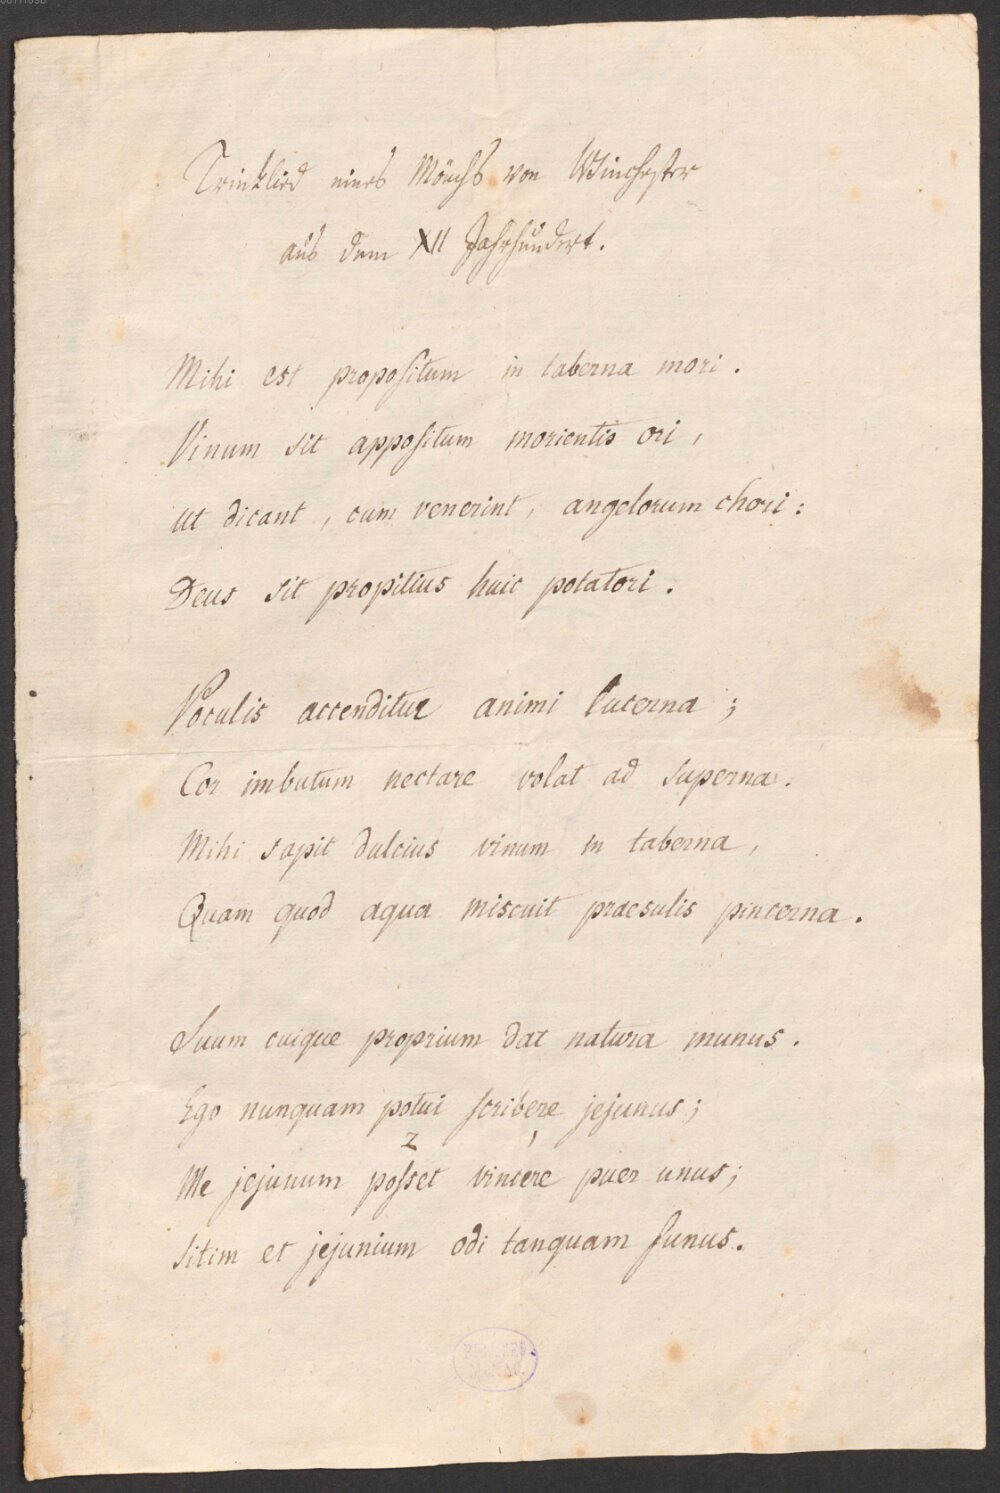 Trinklied eines Mönchs von Winchester
aus dem XII Jahrhundert.
Mihi est propositum in taberna mori.
Vinum sit appositum morientis ori,
ut dicant, cum venerint, angelorum chori:
Deus sit propitius huic potatori.
Poculis accenditur animi lucerna;
Cor imbutum nectare volat ad superna.
Mihi sapit dulcius vinum in taberna,
Quam quod aqua miscuit praesulis pincerna.
Suum cuique proprium dat natura munus.
Ego nunquam potui scribere jejunus;
2 1
Me jejunum posset vincere puer unus;
Sitim et jejunium odi tanquam funus.